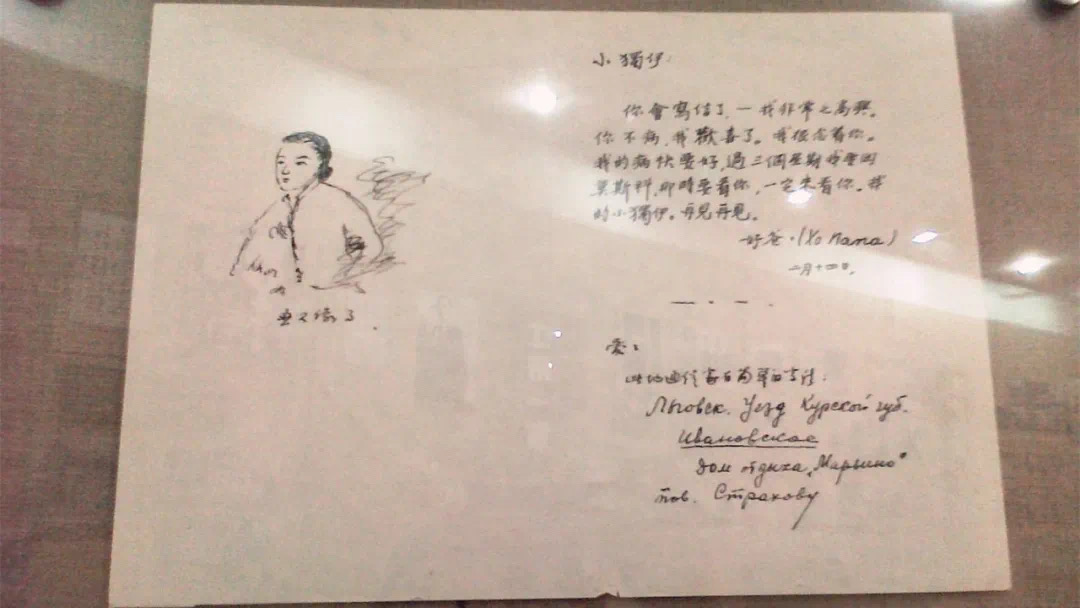 小獨伊：
你會寫信了——我非常之高興。
你不病，我歡喜了。我很念着你。
我的病快要好，過三個星期我會回
莫斯科，那時要看你，一定來看你。我
的小獨伊。再見再見。
好爸。(Xo nana)
二月十四日。
畫又壞了。
愛：
此地通信 簡單的寫法：
Льговск. Уезд Курской губ.
Ивановское
Дом отдыха „Марьино“
тов. Страхову